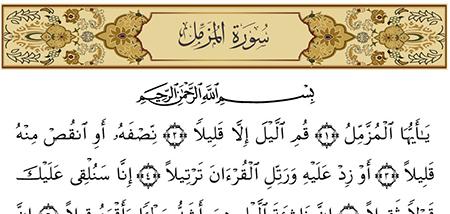 سُورَةُ المُزَّمِّل
بِسْمِ ٱللَّهِ ٱلرَّحْمَٰنِ ٱلرَّحِيمِ
يَٰٓأَيُّهَا ٱلْمُزَّمِّلُ ﴿١﴾ قُمِ ٱلَّيْلَ إِلَّا قَلِيلًا ﴿٢﴾ نِّصْفَهُۥٓ أَوِ ٱنقُصْ مِنْهُ
قَلِيلًا ﴿٣﴾ أَوْ زِدْ عَلَيْهِ وَرَتِّلِ ٱلْقُرْءَانَ تَرْتِيلًا ﴿٤﴾ إِنَّا سَنُلْقِى عَلَيْكَ